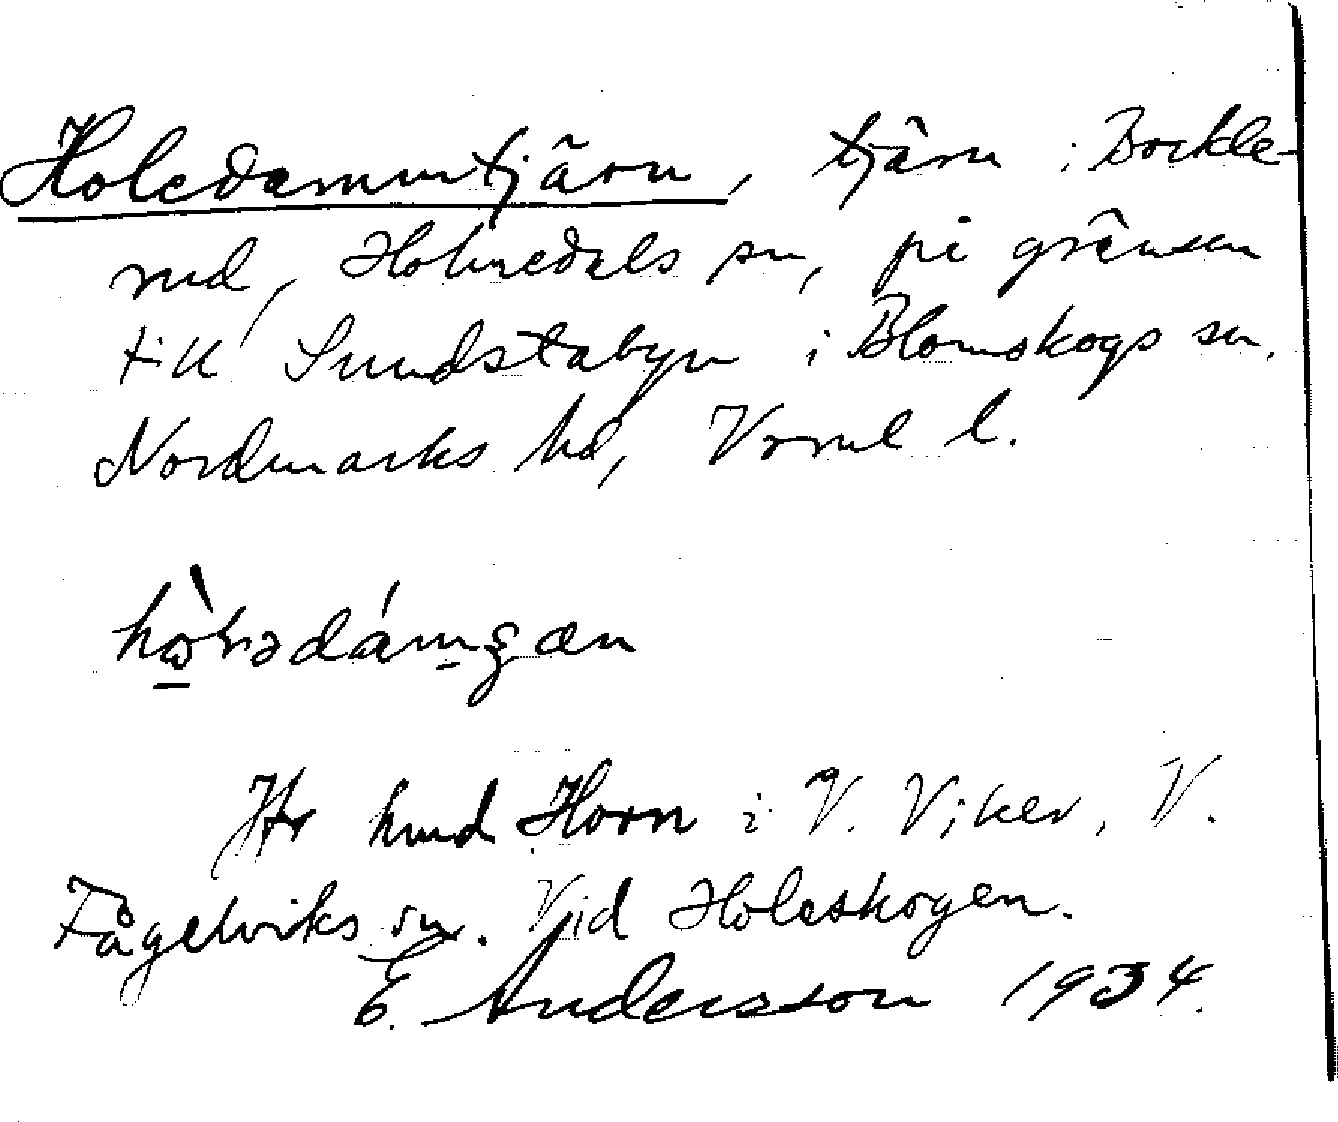 Holedammtjärn, tjärn i Bockle-
rud, Holmedals sn, på gränsen
till Sundstabyn i Blomskogs sn.
Nordmarks hd, Vrml l.

Hr hmd Horn i V. Viker, V.
Fågelviks sn. Vid Holeskogen.
E. Andersson 1934.